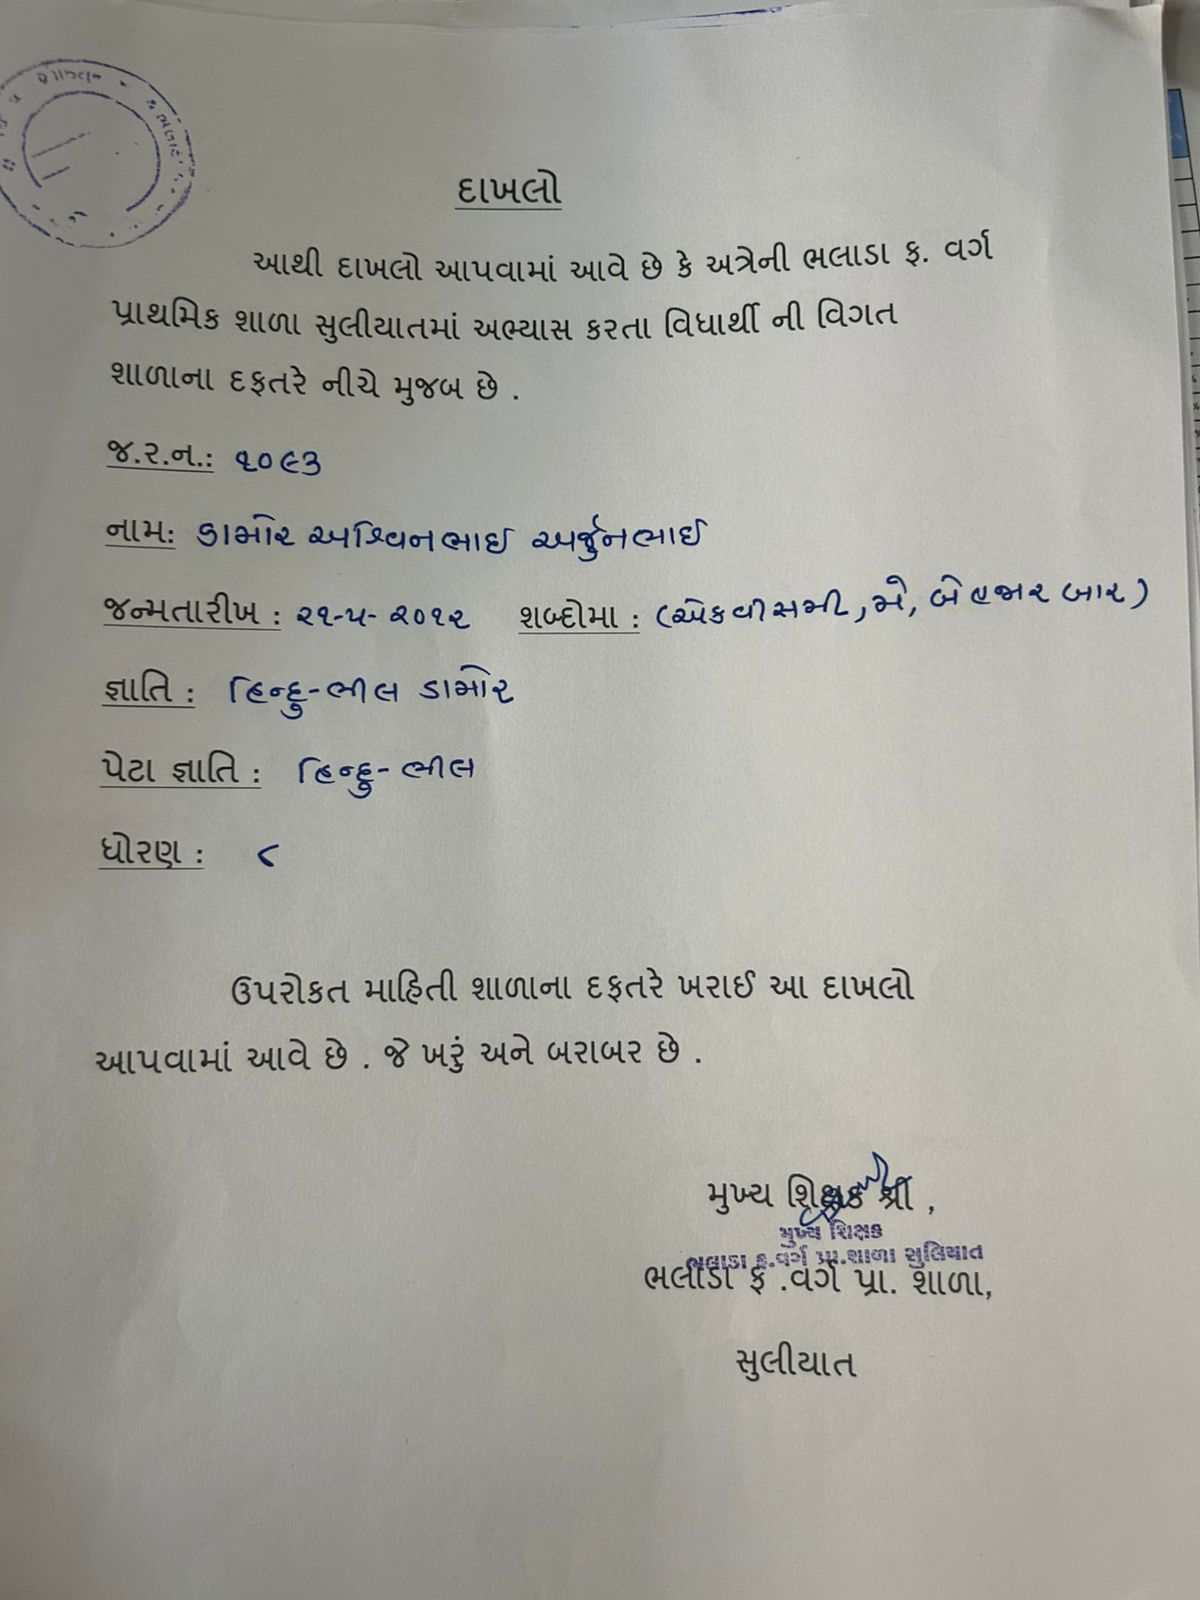 દાખલો
આથી દાખલો આપવામાં આવે છે કે અત્રેની ભલાડા ફ. વર્ગ
પ્રાથમિક શાળા સુલીયાતમાં અભ્યાસ કરતા વિધાર્થી ની વિગત
શાળાના દફતરે નીચે મુજબ છે .
જ.ર.ન.: ૧૦૯૩
નામ: ડામોર અશ્વિનભાઈ અર્જુનભાઈ
જન્મતારીખ : ૨૧-૫-૨૦૧૨ શબ્દોમા : (એકવીસમી, મે, બેહજાર બાર)
જ્ઞાતિ : હિન્દુ-ભીલ ડામોર
પેટા જ્ઞાતિ : હિન્દુ-ભીલ
ધોરણ : ૮
ઉપરોકત માહિતી શાળાના દફતરે ખરાઈ આ દાખલો
આપવામાં આવે છે . જે ખરું અને બરાબર છે .
મુખ્ય શિક્ષક શ્રી ,
મુખ્ય શિક્ષક
ભલાડા ફ.વર્ગ પ્રા.શાળા સુલિયાત
ભલાડા ફ .વર્ગ પ્રા. શાળા,
સુલીયાત